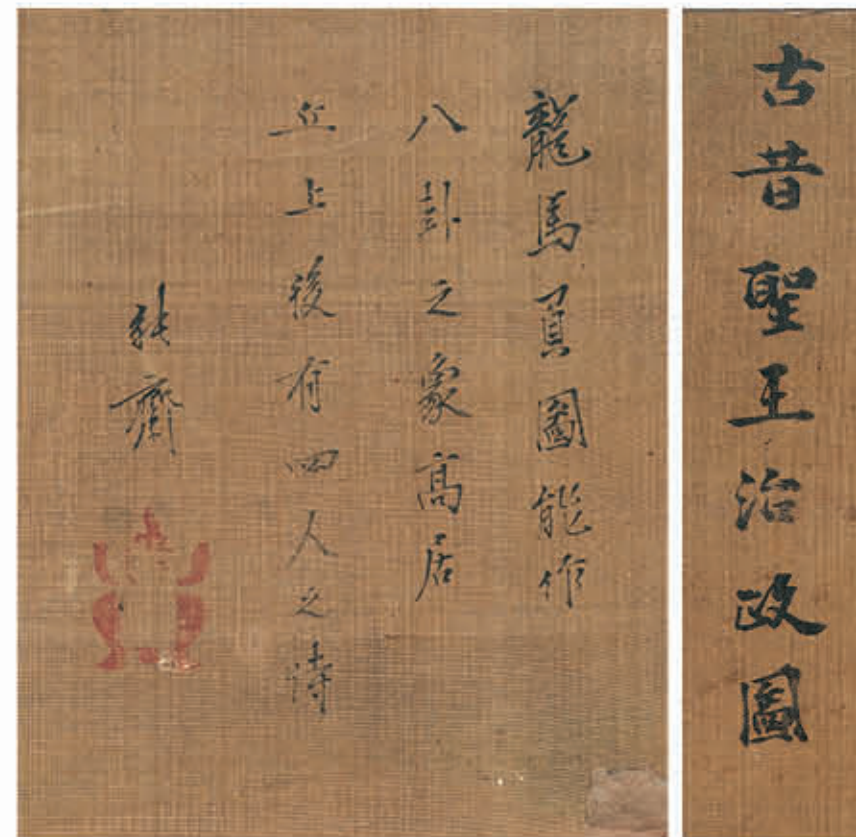 古昔聖王治政圖
龍馬負圖能作
八卦之象高居
丘上後有四人之侍
齋